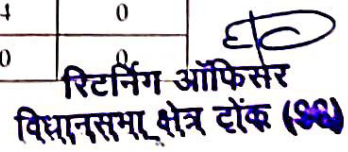 4 0
0 0
रिटर्निग ऑफिसर
विधानसभा क्षेत्र टोंक